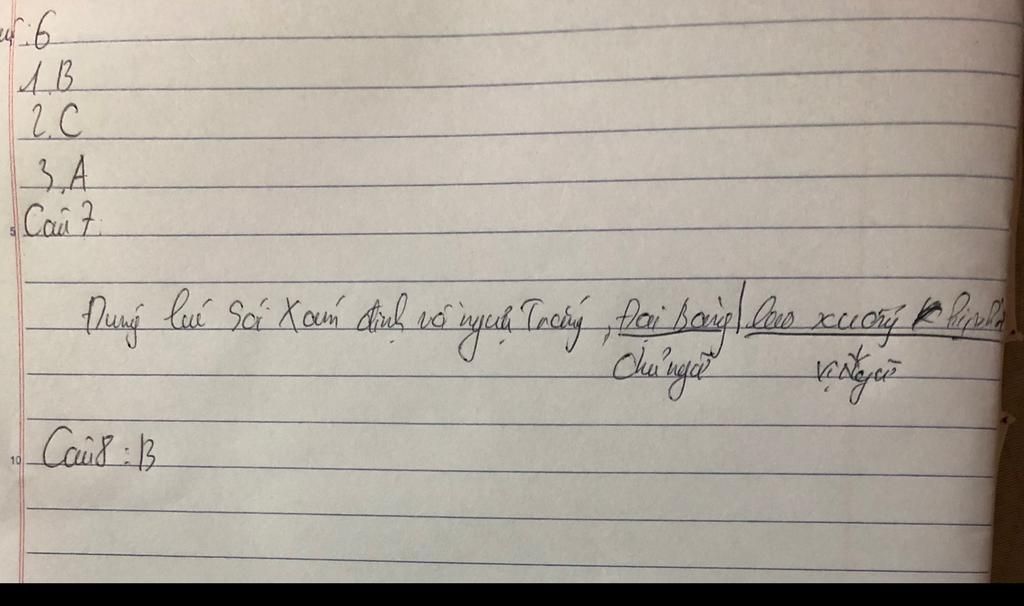 : 6
1. B
2. C
3. A
5
Câu 7.
Đúng lúc Sói Xám định vồ ngựa Trắng, Đại bàng | lao xuống
Chủ ngữ vị Ngữ
10 Câu 8 : B